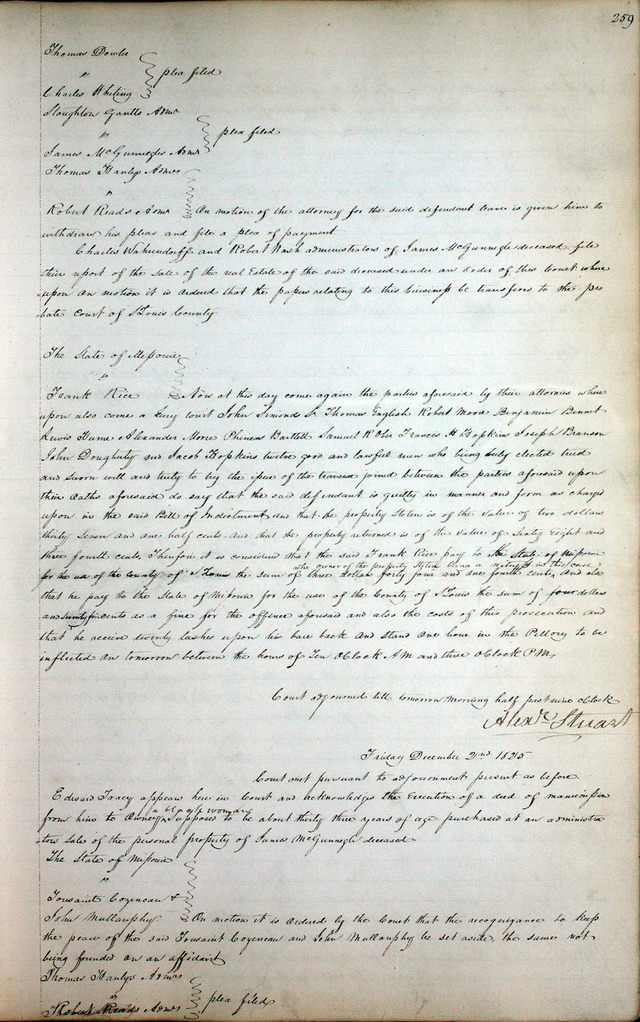 259
Thomas Dowler
vs plea filed
Charles Whiting
Stoughton Gantts Admr
vs plea filed
James McGunnegles Admrs
Thomas Hanlys Admrs
vs
Robert Reads Admr On motion of the attorney for the said defendant leave is given him to
withdraw his pleas and file a plea of payment
Charles Wahrendorff and Robert Wash administrators of James McGunnegle deceased file
their report of the Sale of the real Estate of the said deceased under an order of this Court where
upon on motion it is ordered that the papers relating to this business be transfered to the pro
bate Court of St Louis County
The State of Missouri
vs
Frank Rice Now at this day come again the parties aforesaid by their attornies where
upon also come a Jury to wit John Simonds Sr Thomas English Robert Moore Benjamin Bennet
Lewis Hume Alexander More Phineas Bartlett Samuel R Ober Francis H Hopkins Joseph Branson
John Dougherty and Jacob Hopkins twelve good and lawful men who being duly elected tried
and sworn well and truly to try the issue of the traverse joined between the parties aforesaid upon
their oaths aforesaid do say that the said defendant is guilty in manner and form as charged
upon in the said Bill of Indictment and that the property Stolen is of the value of two dollars
thirty Seven and one half cents And that the property returned is of the value of Sixty Eight and
three fourth cents Therefore it is considered that the said Frank Rice pay to the State of Missouri
the owner of the property Stolen being a witness in this case
for the use of the County of St Louis the sum of three dollars forty four and one fourth cents, And also
that he pay to the State of Missouri for the use of the County of St Louis the sum of four dollars
and cents as a fine for the offence aforesaid and also the costs of this prosecution and
that he receive twenty lashes upon his bare back and stand one hour in the Pillory to be
inflicted on tomorrow between the hours of Ten OClock AM and three OClock PM.
Court adjourned till tomorrow morning half past nine oClock
Alexr Stuart
Friday December 2nd 1825
Court met pursuant to adjournment present as before
Edward Tracy appears here in Court and acknowledges the Execution of a deed of manumission
a black woman
from him to supposed to be about thirty three years of age purchased at an administra
tors sale of the personal property of James McGunnegle deceased
The State of Missouri
vs
Tousaint Cozeneau &
John Mullanphy On motion it is ordered by the Court that the recognizance to keep
the peace of the said Tousaint Cozeneau and John Mullanphy be set aside, the same not
being founded on an affidavit
Thomas Hanlys Admrs
vs plea filed
Robert Reads Admrs